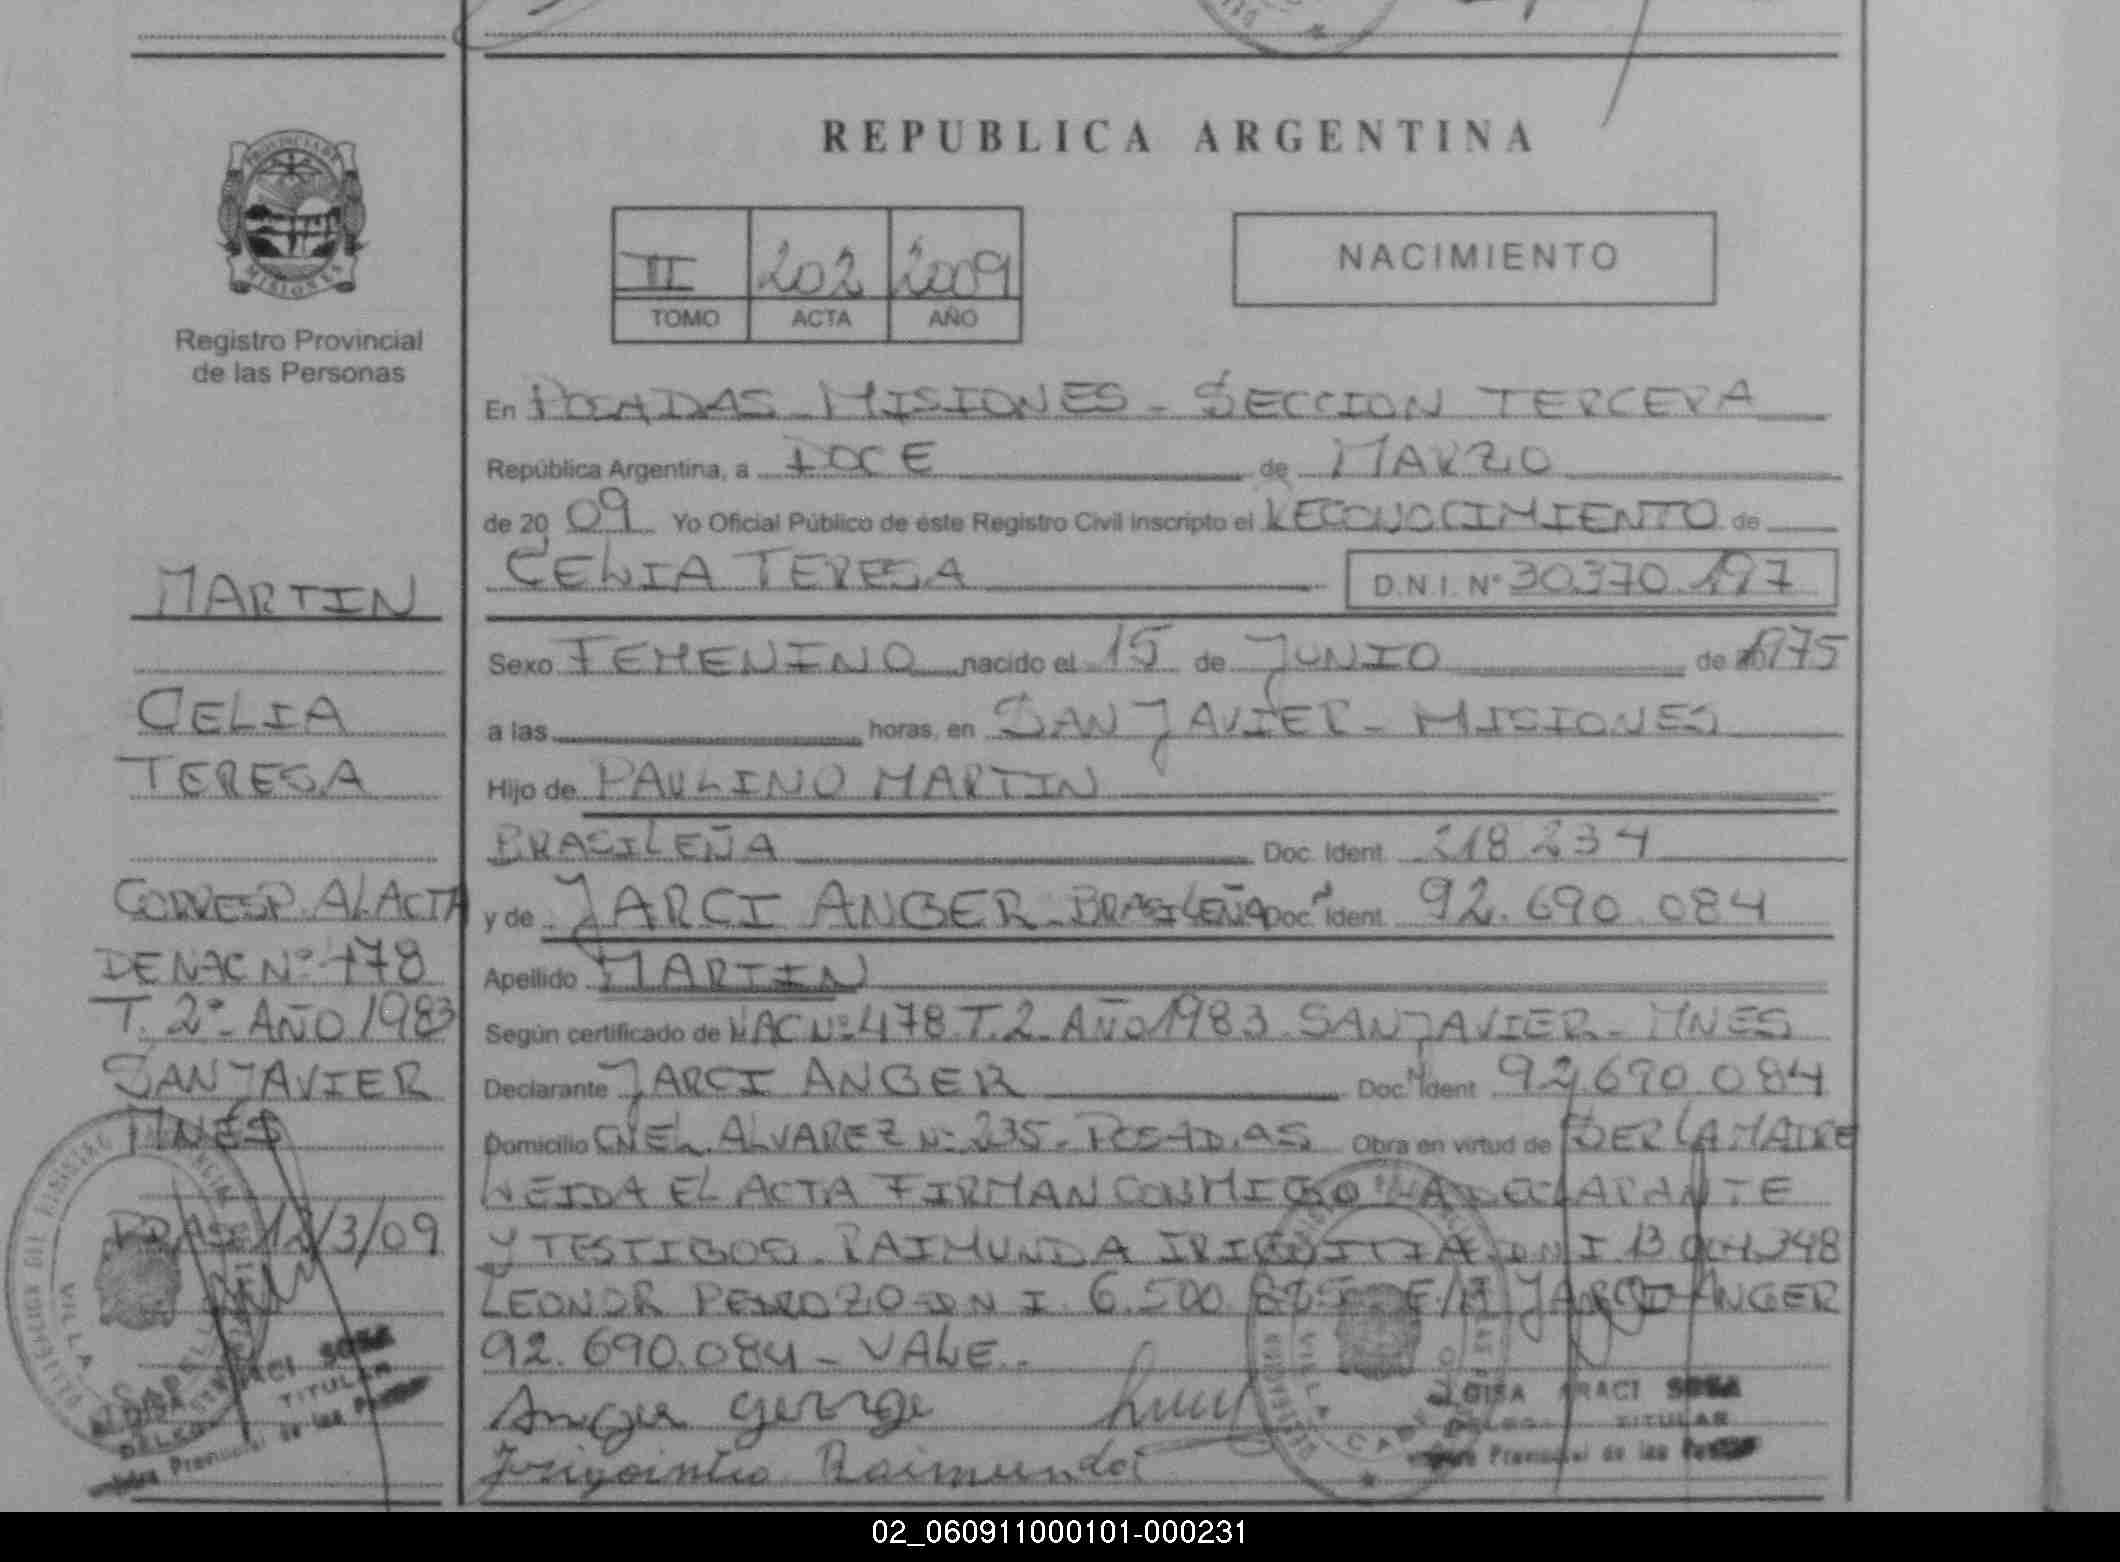 REPUBLICA ARGENTINA
PROVINCIA DE
MISIONES
Registro Provincial
de las Personas
II 202 2009
TOMO ACTA AÑO
NACIMIENTO
En POSADAS - MISIONES - SECCION TERCERA
República Argentina, a DOCE de MARZO
de 20 09 Yo Oficial Público de éste Registro Civil inscripto el RECONOCIMIENTO de
CELIA TERESA D.N.I. Nº 30.370.197
Sexo FEMENINO nacido el 15 de JUNIO de 1975
a las horas, en SAN JAVIER - MISIONES
Hijo de PAULINO MARTIN
BRASILEÑA Doc. Ident. 218 234
y de JARCI ANGER - BRASILEÑA Doc. Ident. 92.690.084
Apellido MARTIN
Según certificado de NAC Nº 478 T. 2 - AÑO 1983 SAN JAVIER - MNES
Declarante JARCI ANGER Doc. Ident 92.690.084
Domicilio CNEL. ALVAREZ Nº 235 - POSADAS Obra en virtud de SER LA MADRE
LEIDA EL ACTA FIRMAN CONMIGO LA DECLARANTE
Y TESTIGOS. RAIMUNDA D N I 13
LEONOR PEDROZO D N I 6.500 JARCI ANGER
92.690.084 - VALE -
Anger
MARTIN
CELIA
TERESA
CORRESP. AL ACTA
DE NAC Nº 478
T. 2º - AÑO 1983
SAN JAVIER
MNES
12/3/09
VILLA CABELLO
ARACI SOSA
TITULAR
ARACI SOSA
TITULAR
Provincial de las
02_060911000101-000231